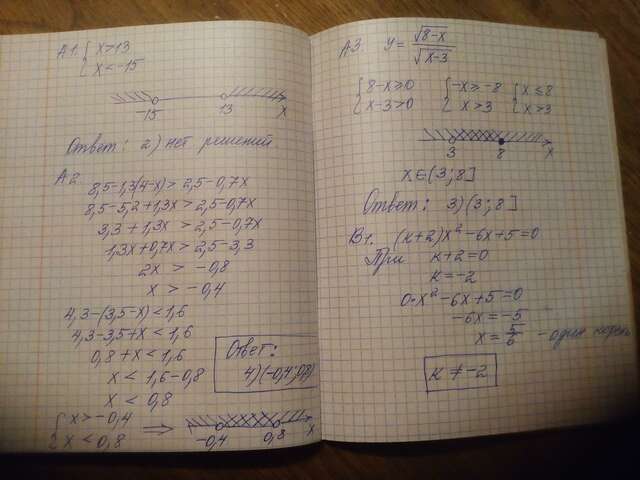 А1. { x>13
x<-15
-15 13 x
Ответ: 2) нет решений
А2
8,5-1,3(4-x)>2,5-0,7x
8,5-5,2+1,3x>2,5-0,7x
3,3+1,3x>2,5-0,7x
1,3x+0,7x>2,5-3,3
2x > -0,8
x > -0,4
4,3-(3,5-x)<1,6
4,3-3,5+x<1,6
0,8+x<1,6
x < 1,6-0,8
x < 0,8
{ x>-0,4
x<0,8 ⟹ -0,4 0,8 x
Ответ:
4)(-0,4;0,8)
А3. y = √8-x / √x-3
{ 8-x≥0 { -x≥-8 { x≤8
x-3>0 x>3 x>3
3 8 x
x∈(3;8]
Ответ: 3)(3;8]
В1. (к+2)x²-6x+5=0
При к+2=0
к=-2
0•x²-6x+5=0
-6x=-5
x=5/6 - один корень
к ≠ -2